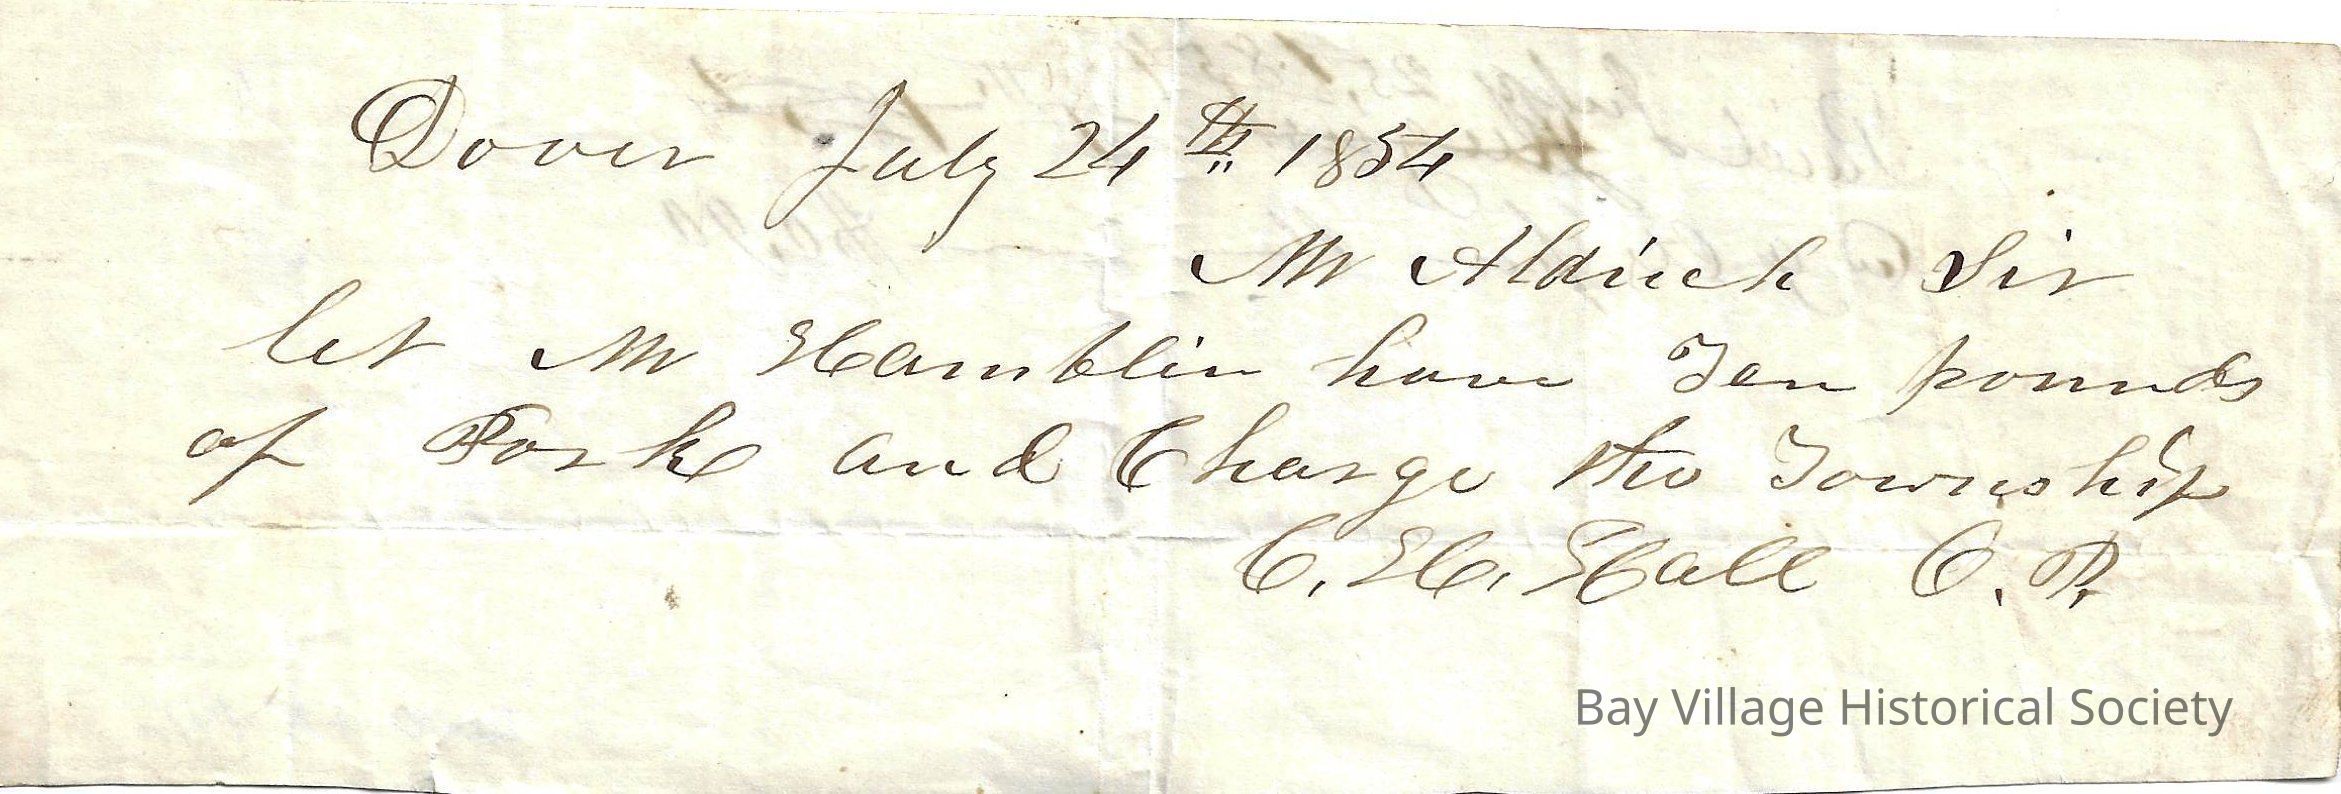 Dover July 24th 1854
Mr Aldrich Sir
let Mr Hamblin have Ten pounds
of Pork and Charge the Township
C. H. Hall O. P.
Bay Village Historical Society